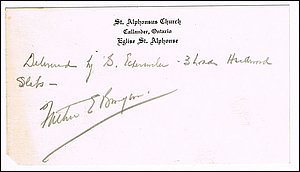 St. Alphonsus Church
Callander, Ontario
Eglise St. Alphonse
Delivered by S. - 3 Loads Hardwood
Slabs -
Father E